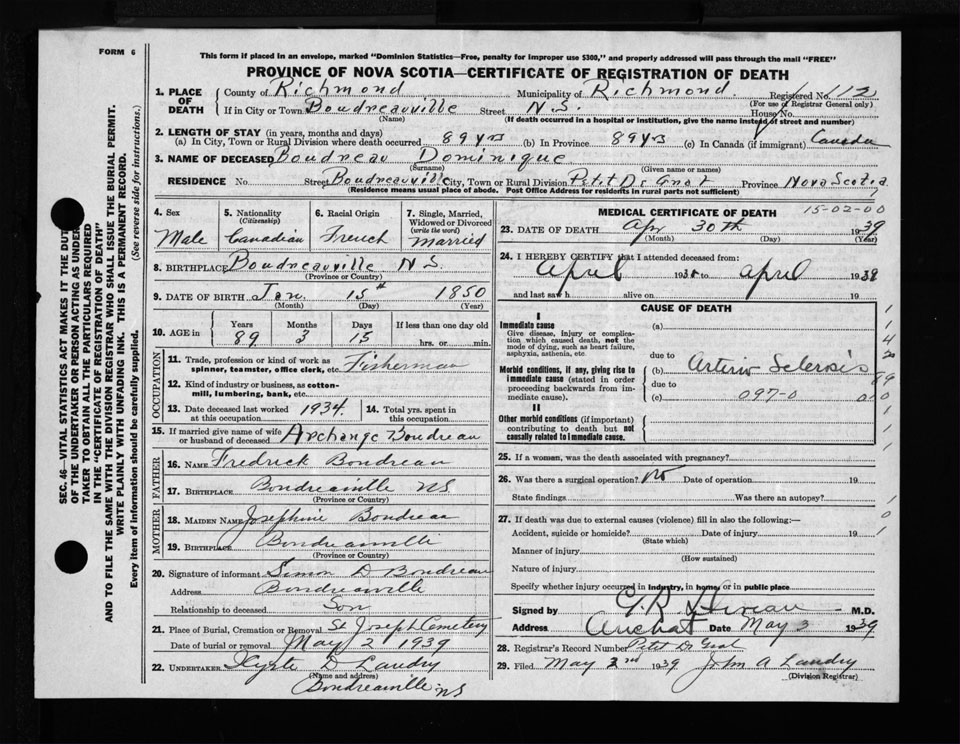 FORM 6
This form if placed in an envelope, marked "Dominion Statistics—Free, penalty for improper use $300," and properly addressed will pass through the mail "FREE"
PROVINCE OF NOVA SCOTIA—CERTIFICATE OF REGISTRATION OF DEATH
1. PLACE OF DEATH County of Richmond Municipality of Richmond Registered No. 112
(For use of Registrar General only)
If in City or Town Boudreauville Street N.S. House No.
(Name) (If death occurred in a hospital or institution, give the name instead of street and number)
2. LENGTH OF STAY (in years, months and days)
(a) In City, Town or Rural Division where death occurred 89 yrs (b) In Province 89 yrs (c) In Canada (if immigrant) Canada
3. NAME OF DECEASED Boudreau Dominique
(Surname) (Given name or names)
RESIDENCE No. Street Boudreauville City, Town or Rural Division Petit De Grat Province Nova Scotia
(Residence means usual place of abode. Post Office Address for residents in rural parts not sufficient)
4. Sex 5. Nationality (Citizenship) 6. Racial Origin 7. Single, Married, Widowed or Divorced (write the word)
Male Canadian French married
8. BIRTHPLACE Boudreauville N S.
(Province or Country)
9. DATE OF BIRTH Jan. 15th 1850
(Month) (Day) (Year)
10. AGE in Years Months Days If less than one day old
89 3 15 hrs. or min.
OCCUPATION
11. Trade, profession or kind of work as spinner, teamster, office clerk, etc. Fisherman
12. Kind of industry or business, as cotton-mill, lumbering, bank, etc.
13. Date deceased last worked at this occupation 1934. 14. Total yrs. spent in this occupation
15. If married give name of wife or husband of deceased Archange Boudreau
FATHER
16. NAME Fredrick Boudreau
17. BIRTHPLACE Boudreauville NS.
(Province or Country)
MOTHER
18. MAIDEN NAME Josephine Boudreau
19. BIRTHPLACE Boudreauville
(Province or Country)
20. Signature of informant Simon D Boudreau
Address Boudreauville
Relationship to deceased Son
21. Place of Burial, Cremation or Removal St Joseph Cemetery
Date of burial or removal May 2 1939
22. UNDERTAKER D Landry
(Name and address)
Boudreauville NS
MEDICAL CERTIFICATE OF DEATH
15-02-00
23. DATE OF DEATH Apr 30th 1939
(Month) (Day) (Year)
24. I HEREBY CERTIFY that I attended deceased from:
April 193 to April 1939
and last saw h alive on 19
CAUSE OF DEATH
I
Immediate cause
Give disease, injury or complication which caused death, not the mode of dying, such as heart failure, asphyxia, asthenia, etc.
(a)
due to
Morbid conditions, if any, giving rise to immediate cause (stated in order proceeding backwards from immediate cause).
(b) Arterio Sclerosis
due to
(c) 097-0
II
Other morbid conditions (if important) contributing to death but not causally related to immediate cause.
25. If a woman, was the death associated with pregnancy?
26. Was there a surgical operation? No Date of operation 19
State findings Was there an autopsy?
27. If death was due to external causes (violence) fill in also the following:—
Accident, suicide or homicide? Date of injury 19
(State which)
Manner of injury
(How sustained)
Nature of injury
Specify whether injury occurred in Industry, in home, or in public place
Signed by M.D.
Address Arichat Date May 3 1939
28. Registrar's Record Number Petit De Grat
29. Filed May 2nd 1939 John A Landry
(Division Registrar)
SEC. 46—VITAL STATISTICS ACT MAKES IT THE DUTY
OF THE UNDERTAKER OR PERSON ACTING AS UNDER-
TAKER TO OBTAIN ALL THE PARTICULARS REQUIRED
IN THE "CERTIFICATE OF REGISTRATION OF DEATH"
AND TO FILE THE SAME WITH THE DIVISION REGISTRAR WHO SHALL ISSUE THE BURIAL PERMIT.
WRITE PLAINLY WITH UNFADING INK. THIS IS A PERMANENT RECORD.
Every item of information should be carefully supplied. (See reverse side for instructions.)